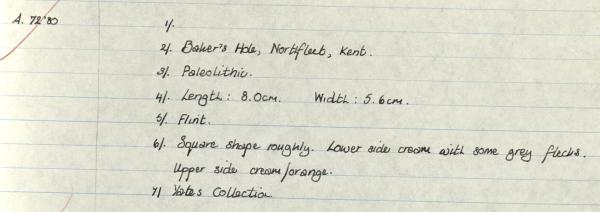 A. 72'80
1/.
2/. Baker's Hole, Northfleet, Kent.
3/. Paleolithic.
4/. Length: 8.0cm. Width: 5.6cm.
5/. Flint.
6/. Square shape roughly. Lower side cream with some grey flecks.
Upper side cream/orange.
7/ Yates Collection